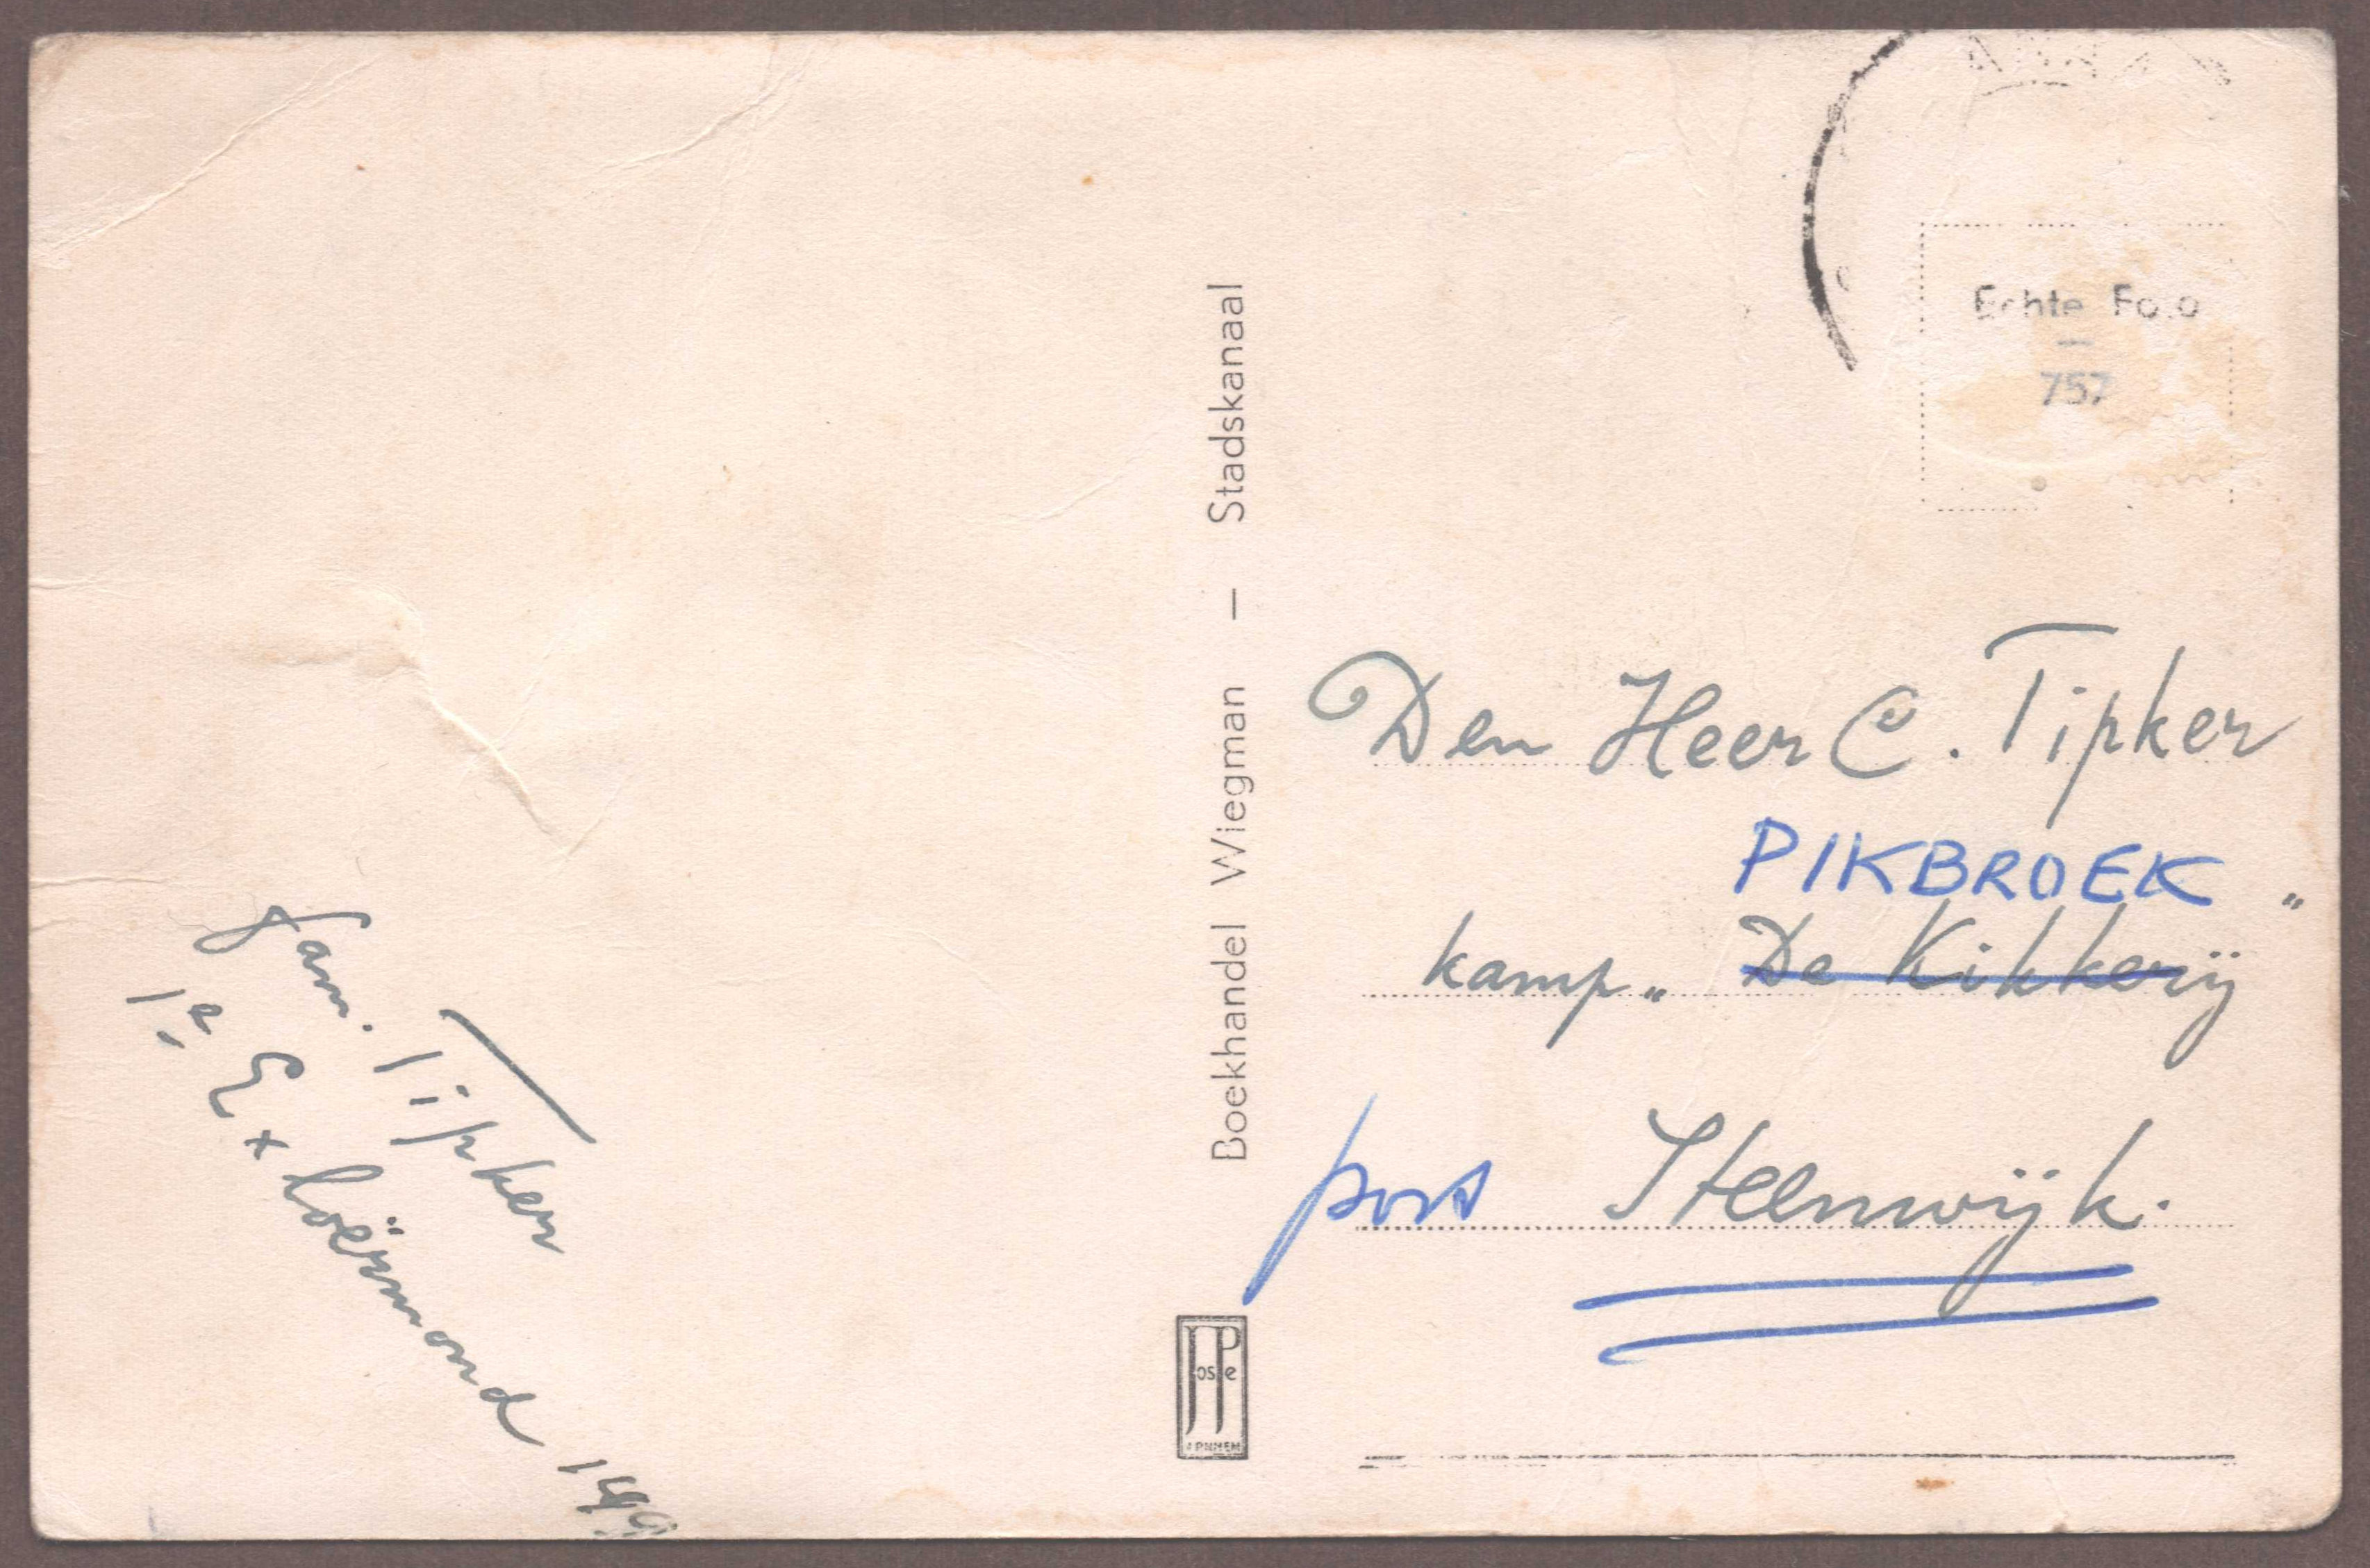 Fam. Tipker
1e Exloërmond
Boekhandel Wiegman — Stadskanaal
JosPe
ARNHEM
Echte Foto
—
757
Den Heer C. Tipker
PIKBROEK
kamp „ De Kikkerij "
post Steenwijk.